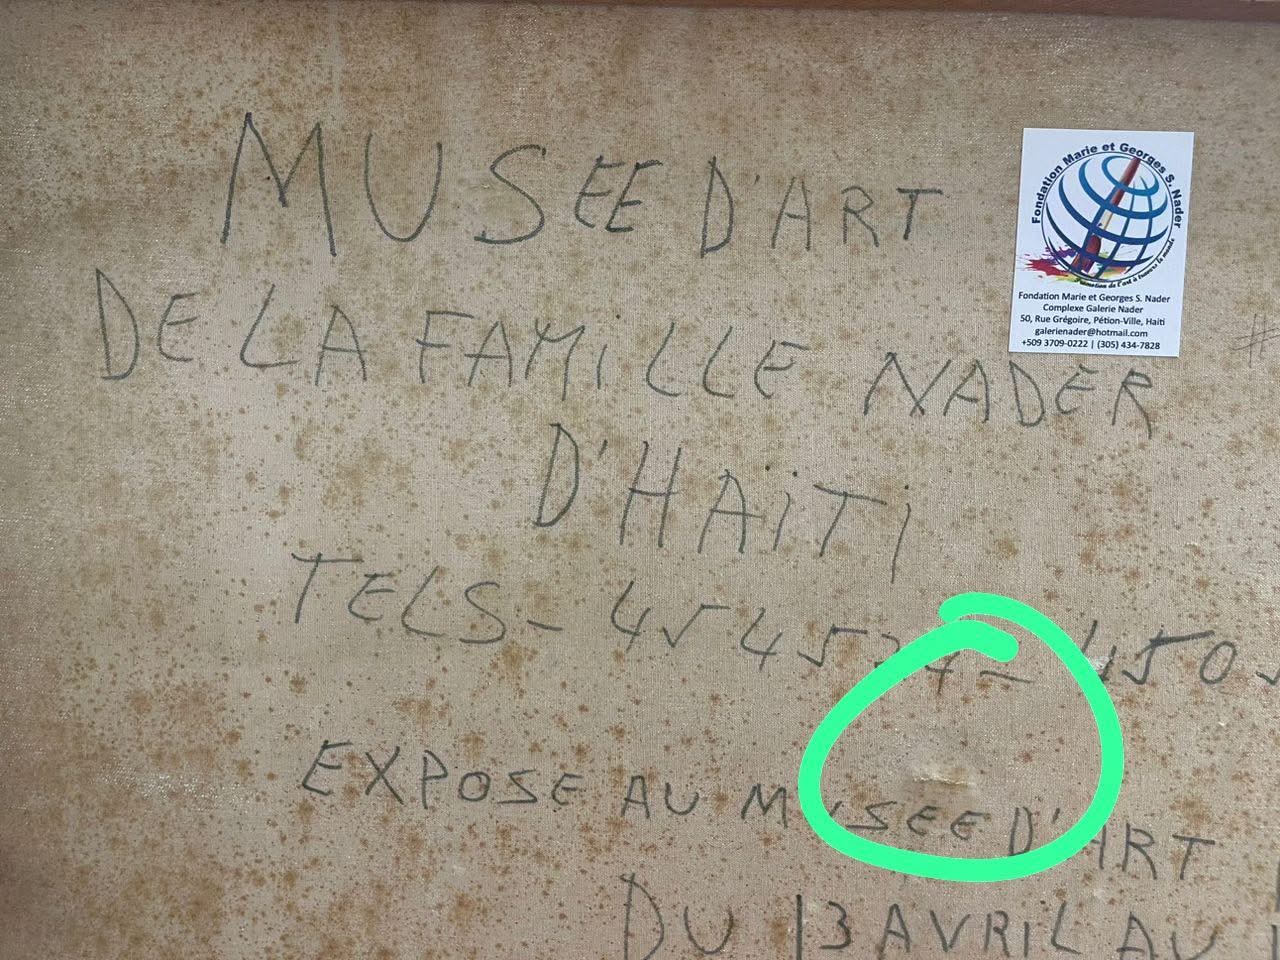 MUSEE D'ART
DE LA FAMILLE NADER
D'HAITI
TELS-
EXPOSE AU MUSEE D'ART
DU 13 AVRIL AU
Fondation Marie et Georges S. Nader
Promotion de l'art à travers le monde
Fondation Marie et Georges S. Nader
Complexe Galerie Nader
50, Rue Grégoire, Pétion-Ville, Haiti
galerienader@hotmail.com
+509 3709-0222 | (305) 434-7828
#